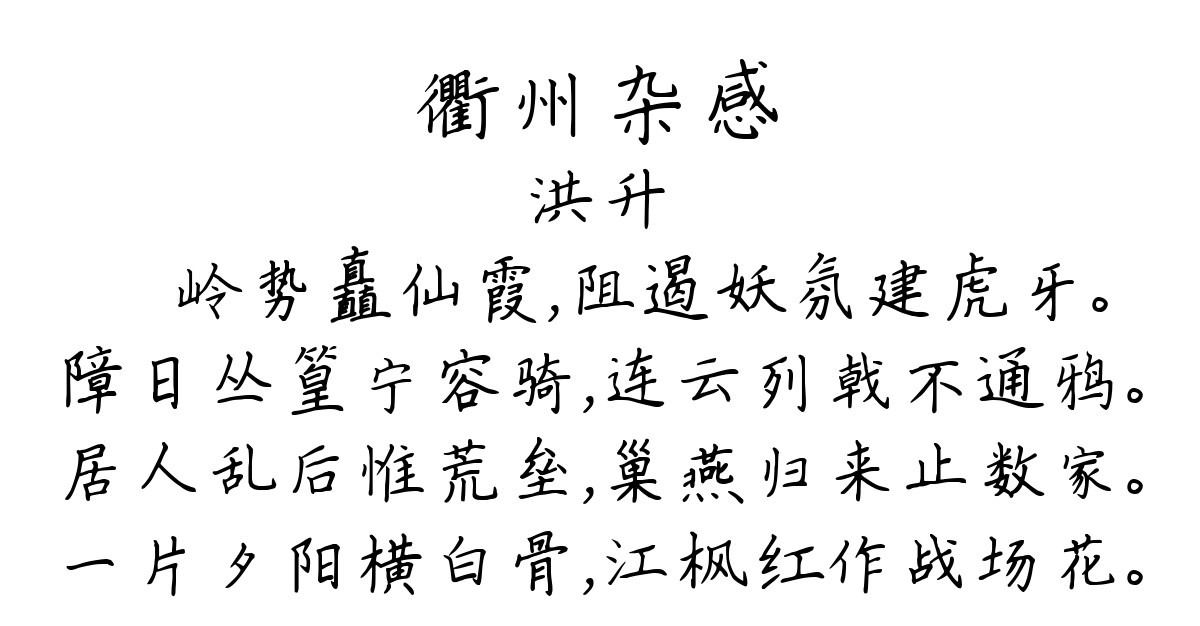 衢州杂感
洪升
岭势矗仙霞,阻遏妖氛建虎牙。
障日丛篁宁容骑,连云列戟不通鸦。
居人乱后惟荒垒,巢燕归来止数家。
一片夕阳横白骨,江枫红作战场花。